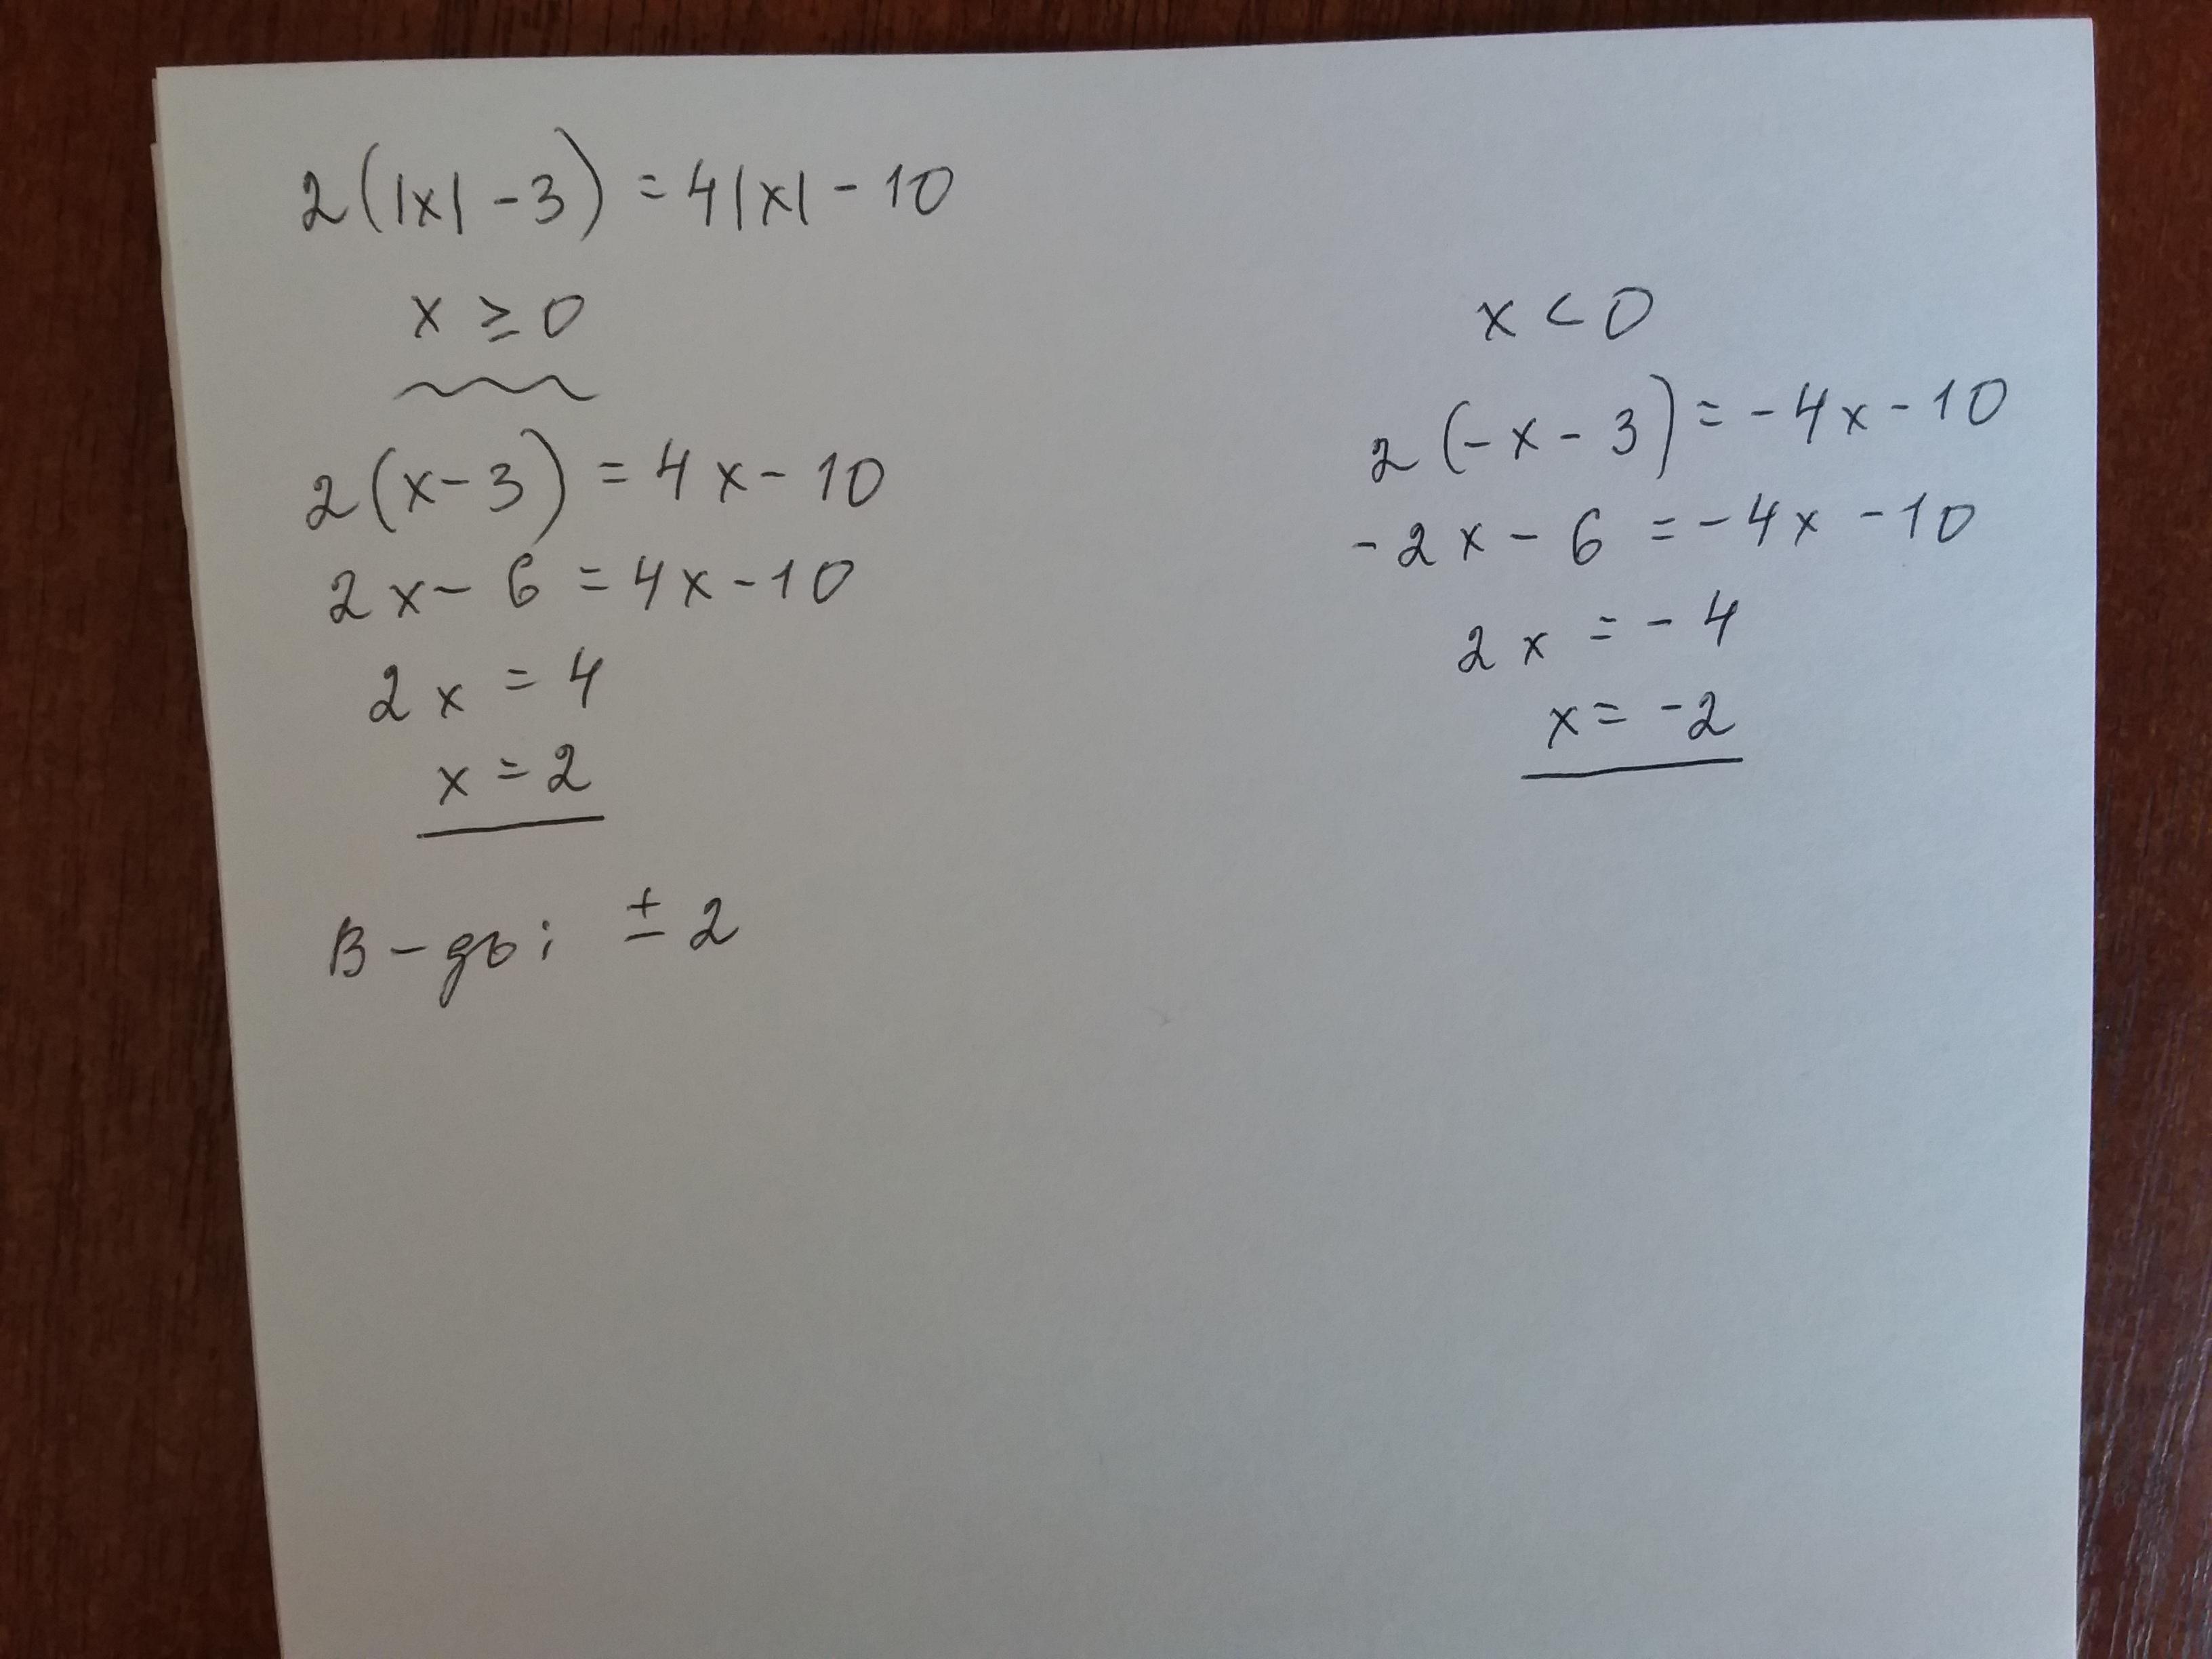 2(|x| - 3) = 4|x| - 10
x ≥ 0
2(x - 3) = 4x - 10
2x - 6 = 4x - 10
2x = 4
x = 2
x < 0
2(-x - 3) = -4x - 10
-2x - 6 = -4x - 10
2x = -4
x = -2
В-дь: ± 2